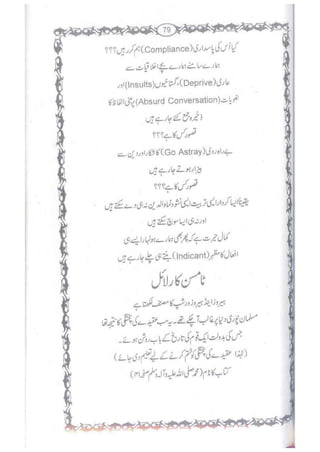 79
کیا اُس کی پاسداری (Compliance) ہم کر رہیں ہیں؟؟؟
ہمارے سامنے ہمارے بچے اخلاقیات سے
عاری (Deprive)، گستاخیوں (Insults) اور
لغویات (Absurd Conversation) پر مبنی الفاظ کا
ذخیرہ جمع کئے جا رہے ہیں
قصور کس کا ہے؟؟؟
بے راہ روی (Go Astray) کا شکار اور دین سے
بیزار ہوتے جا رہے ہیں
قصور کس کا ہے؟؟؟
یقیناً ایسا کردار ایسی تربیت ایسی نشوونما والدین نہ ہی دے سکتے ہیں
اور نہ ہی ایسا سوچ سکتے ہیں
کمال حیرت ہے کہ پھر بھی ہمارے ہونہار ایسے ہی
افعال کا مظہر (Indicant) بنتے ہی چلے جا رہے ہیں
ٹامسن کارلائل
ہیروز اینڈ ہیروز ورشپ کا مصنف لکھتا ہے
مسلمان پوری دنیا پر غالب آ چکے تھے۔ یہ سب عقیدے کی پختگی کا نتیجہ تھا
جس کی بدولت ایک قوم کی تاریخ کے باب روشن ہوئے۔
(لہٰذا عقیدے کی پختگی کو ختم کرنے کے لیے تعلیم دی جائے)
کتاب کا نام (محمد صلی اللہ علیہ وآلہ وسلم صفحہ ۳)